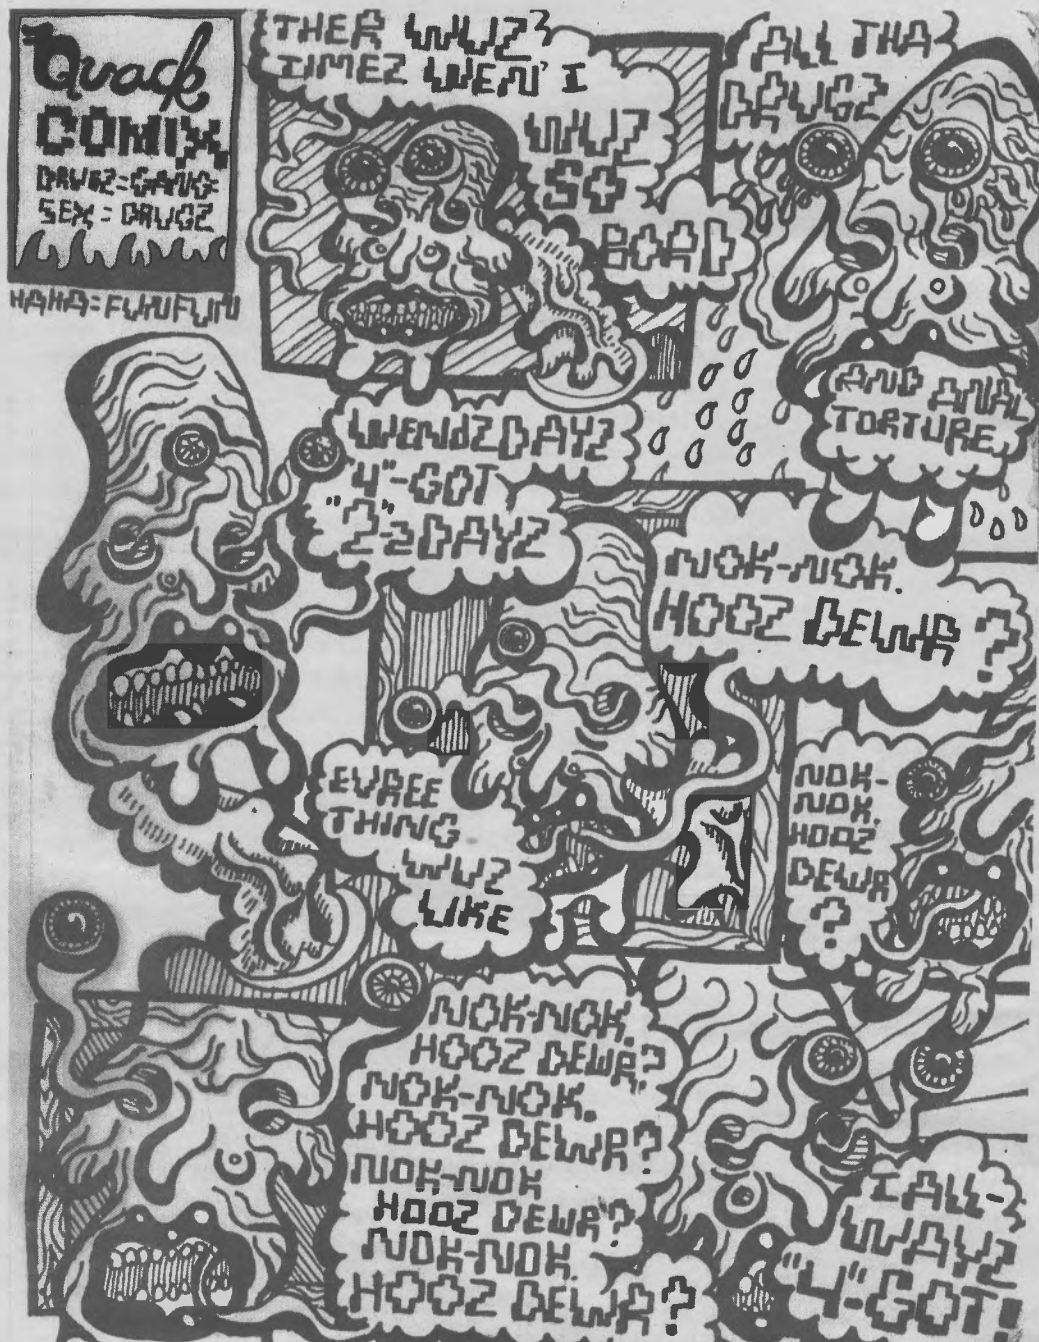 Quack
COMIX
DRUGZ=GANG=
SEX=DRUGZ
HAHA=FUNFUN
THER WUZ
TIMEZ WEN I
WUZ
SO
BOARD
ALL THA
DRUGZ
AND ANAL
TORTURE,
WENDZDAYZ
"4"-GOT
"2"-2DAYZ
NOK-NOK.
HOOZ DEWR?
EVREE
THING
WUZ
LIKE
NOK-
NOK.
HOOZ
DEWR
?
NOK-NOK.
HOOZ DEWR?
NOK-NOK.
HOOZ DEWR?
NOK-NOK
HOOZ DEWR?
NOK-NOK.
HOOZ DEWR?
I ALL-
WAYZ
"4"-GOT!